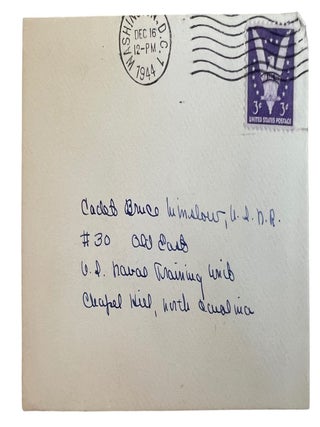 WASHINGTON, D.C. 1
DEC 16
12-PM
1944
3¢ 3¢
UNITED STATES POSTAGE
Cadet Bruce Winslow, U.S.N.R.
#30 Old East
U.S. Naval Training Unit
Chapel Hill, North Carolina